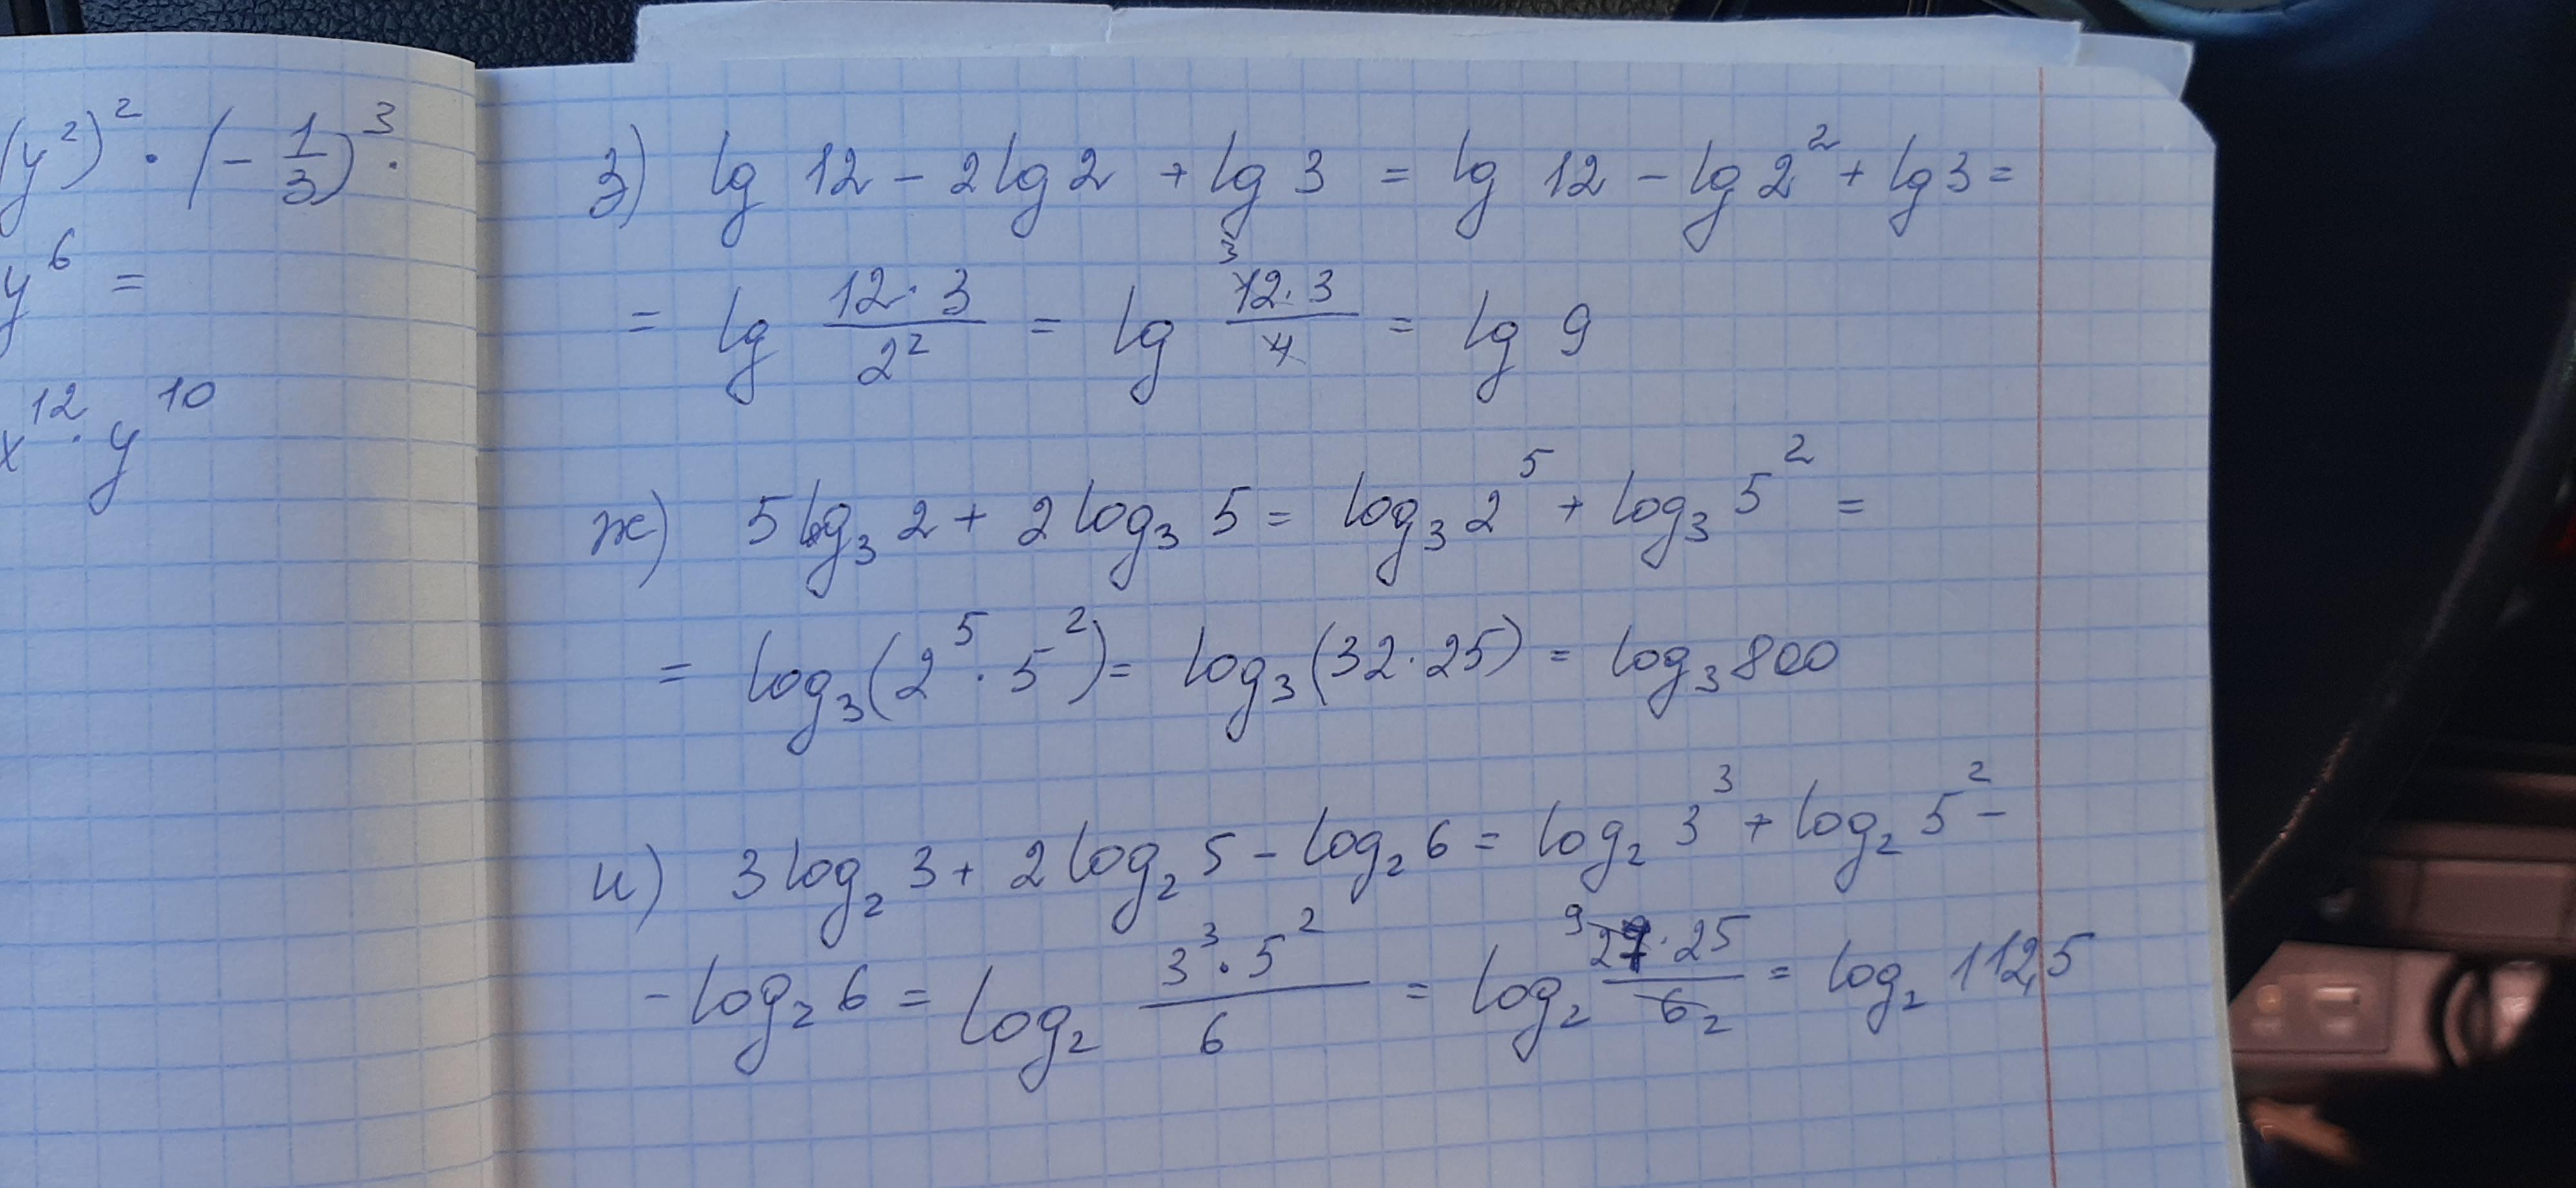 (y²)² · (-1/3)³ ·
y⁶ =
x¹² · y¹⁰
з) lg 12 - 2lg2 + lg 3 = lg 12 - lg2² + lg3 =
= lg (12·3)/2² = lg (12·3)/4 = lg 9
3
ж) 5log₃2 + 2log₃5 = log₃2⁵ + log₃5² =
= log₃(2⁵·5²) = log₃(32·25) = log₃800
и) 3log₂3 + 2log₂5 - log₂6 = log₂3³ + log₂5² -
- log₂6 = log₂ (3³·5²)/6 = log₂ (27·25)/6 = log₂112,5
9
2